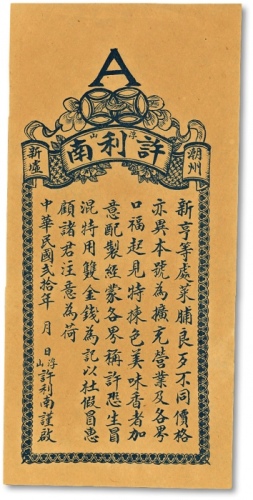 A
許利南
浮山
潮州
新墟
新亨等處菜脯良歹不同價格
亦異本號為擴充營業及各界
口福起見特揀色美味香者加
意配製經蒙各界稱許恐生冒
混特用雙金錢為記以杜假冒惠
顧諸君注意為荷
中華民國貳拾年 月 日浮山許利南謹啟